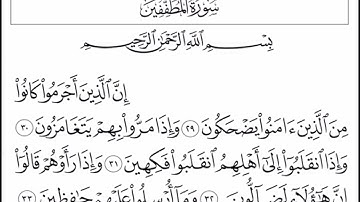 سُورَةُ المُطَفِّفِينَ
بِسْمِ ٱللَّهِ ٱلرَّحْمَٰنِ ٱلرَّحِيمِ
إِنَّ ٱلَّذِينَ أَجْرَمُوا۟ كَانُوا۟
مِنَ ٱلَّذِينَ ءَامَنُوا۟ يَضْحَكُونَ ٢٩ وَإِذَا مَرُّوا۟ بِهِمْ يَتَغَامَزُونَ ٣٠
وَإِذَا ٱنقَلَبُوٓا۟ إِلَىٰٓ أَهْلِهِمُ ٱنقَلَبُوا۟ فَكِهِينَ ٣١ وَإِذَا رَأَوْهُمْ قَالُوٓا۟
إِنَّ هَٰٓؤُلَآءِ لَضَآلُّونَ ٣٢ وَمَآ أُرْسِلُوا۟ عَلَيْهِمْ حَٰفِظِينَ ٣٣